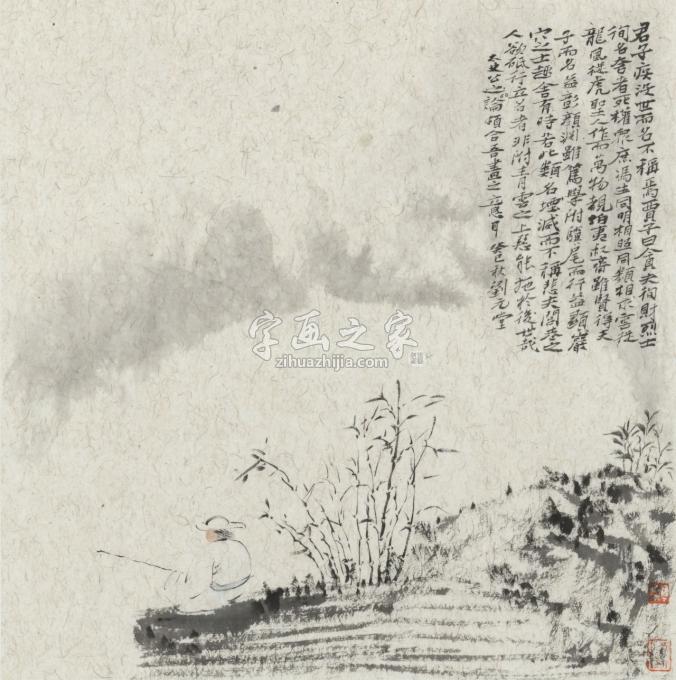 君子疾没世而名不稱焉賈子曰貪夫徇財烈士
徇名夸者死權眾庶馮生同明相照同類相求雲從
龍風從虎聖人作而萬物覩伯夷叔齊雖賢得夫
子而名益彰顏淵雖篤學附驥尾而行益顯巖
穴之士趣舍有時若此類名堙滅而不稱悲夫閭巷之
人欲砥行立名者非附青雲之士惡能施於後世哉
太史公之論頗合吾畫之意耳 癸巳秋劉元堂
字画之家
zihuazhijia.com